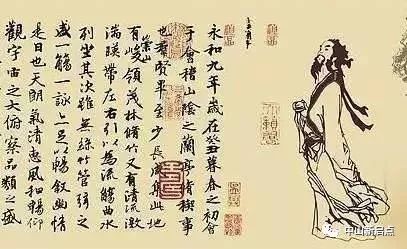 永和九年歲在癸丑暮春之初會
于會稽山陰之蘭亭脩稧事
也羣賢畢至少長咸集此地
有崇山峻領茂林脩竹又有清流激
湍暎帶左右引以為流觴曲水
列坐其次雖無絲竹管弦之
盛一觴一詠亦足以暢敘幽情
是日也天朗氣清惠風和暢仰
觀宇宙之大俯察品類之盛
中山新启点